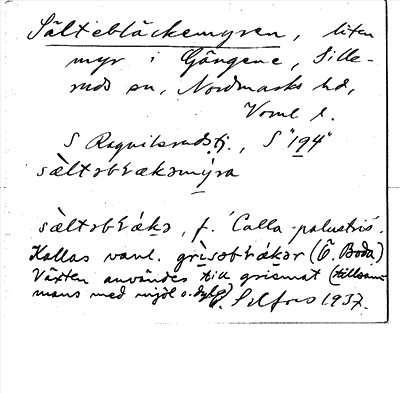 Sältebläckemyren, liten
myr i Gängene, Sille-
ruds sn, Nordmarks hd,
Värml l.
S Ragvilsrudstj., S "194"
sæltəbłækəmýra
sæltəbłǽkə, f. 'Calla palustris'.
Kallas vanl. grìsəbłækər (Ö. Boda)
Växten användes till grismat (tillsam-
mans med mjöl o. dylikt).
Selfors 1937.